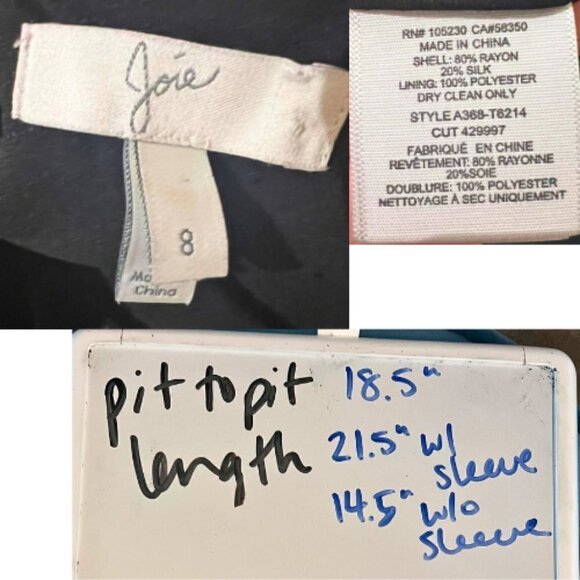 Joie
8
Ma
China
RN# 105230 CA#58350
MADE IN CHINA
SHELL: 80% RAYON
20% SILK
LINING: 100% POLYESTER
DRY CLEAN ONLY
STYLE A368-T6214
CUT 429997
FABRIQUÉ EN CHINE
REVÊTEMENT: 80% RAYONNE
20%SOIE
DOUBLURE: 100% POLYESTER
NETTOYAGE À SEC UNIQUEMENT
pit to pit 18.5"
length 21.5" w/ sleeve
14.5" w/o sleeve